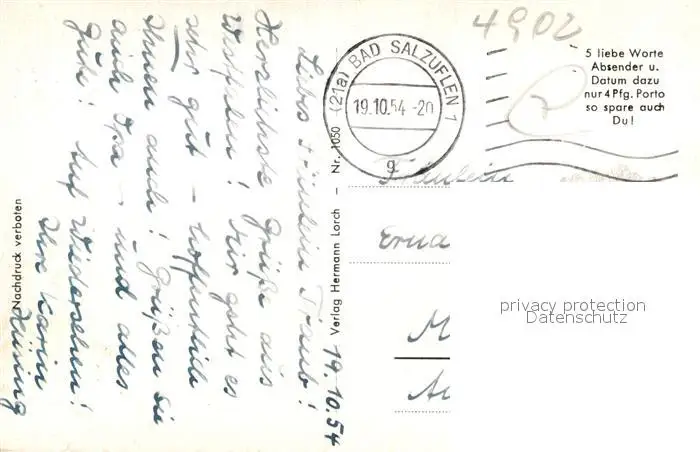 19.10.54
Liebes Fräulein Traub!
Herzlichste Grüße aus
Westfalen! Mir geht es
sehr gut – hoffentlich
Ihnen auch! Grüßen Sie
auch Opa – und alles
Gute! Auf Wiedersehen!
Ihre Karin
Nachdruck verboten
Verlag Hermann Lorch – Nr. 1050
(21a) BAD SALZUFLEN 1
19.10.54 -20
g
4902
5 liebe Worte
Absender u.
Datum dazu
nur 4 Pfg. Porto
so spare auch
Du!
Fräulein
Erna
M
privacy protection
Datenschutz